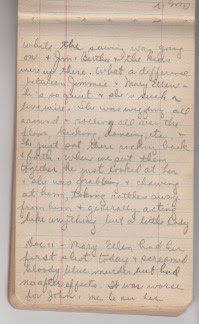 while the sewing was going
on & Jim & Bertha & the kids
were up there. What a difference
between Jimmie & Mary Ellen -
he's so quiet & she's such a
live wire. She was wiggling all
around & rocking all over the
floor, kicking, dancing, etc. -
He just sat there rocking back
& forth - when we put them
together he just looked at her
& she was grabbing & clawing
at him, taking rattles away
from him & generally acting
like anything but a little lady
Dec 11 - Mary Ellen had her
first shot today & screamed
bloody blue murder but had
no after effects. It was worse
for John & me to see her